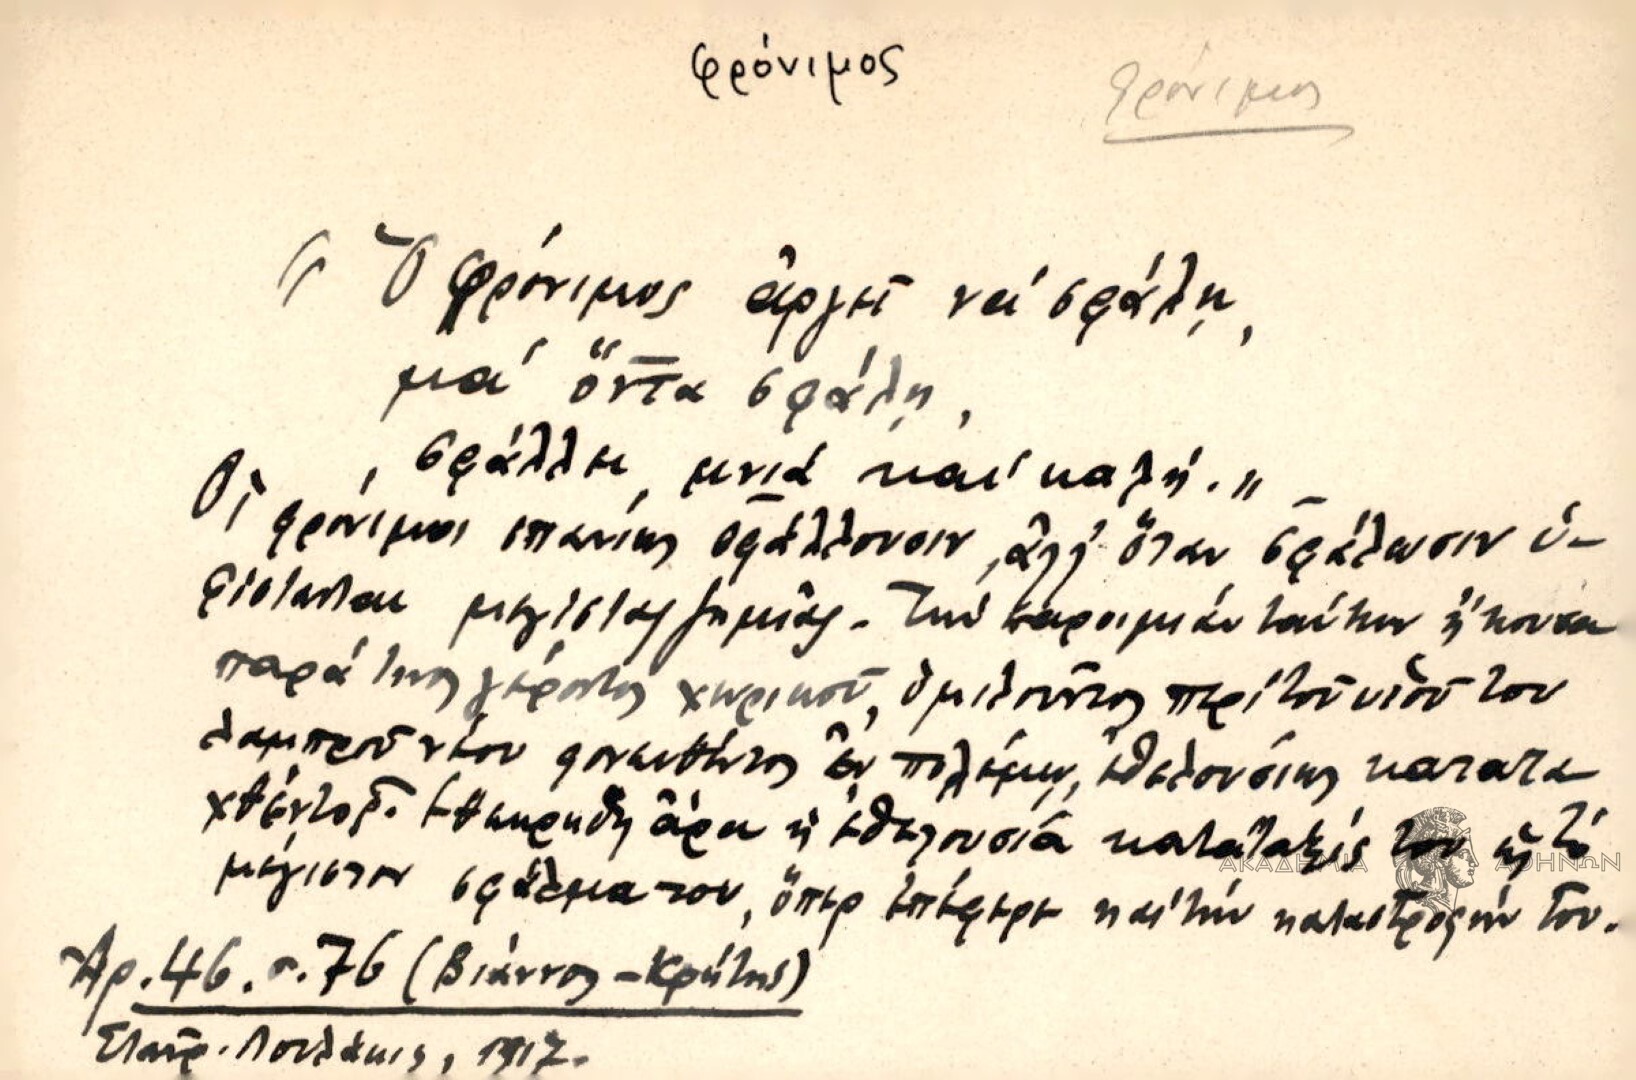 φρόνιμος
φρόνιμος
" Ὁ φρόνιμος ἀργεῖ νά σφάλῃ,
μά ὅντα σφάλῃ,
σφάλλει μνιά καί καλή."
Οἱ φρόνιμοι σπανίως σφάλλουσιν, ἀλλ' ὅταν σφάλωσιν ὑ-
φίστανται μεγίστας ζημίας. Τήν παροιμίαν ταύτην ἤκουσα
παρά τινος γέροντος χωρικοῦ, ὁμιλοῦντος περί τοῦ υἱοῦ του
λαμπροῦ νέου φονευθέντος ἐν πολέμῳ, ἐθελουσίως κατατα
χθέντος. ἐθεωρήθη ἄρα ἡ ἐθελουσία κατάταξίς του ὡς τό
μέγιστον σφάλμα του, ὅπερ ἐπέφερε καί τήν καταστροφήν του.
Ἀρ. 46. σ. 76 (Βιάννος - Κρήτης)
Σταῦρ. Λουλάκις, 1917.
ΑΚΑΔΗΜΙΑ ΑΘΗΝΩΝ